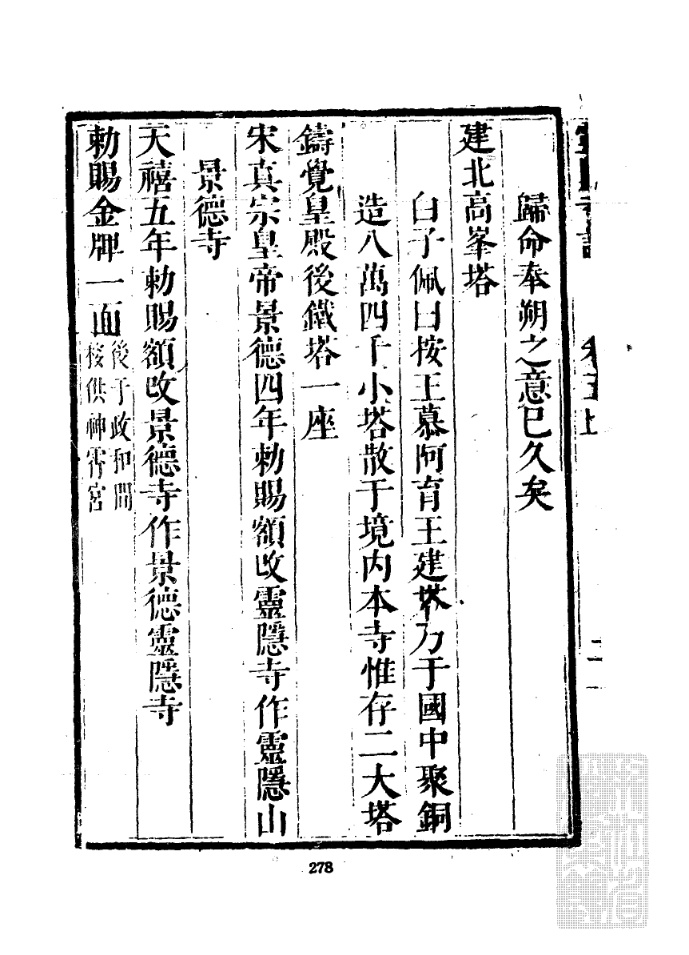 歸命奉朔之意已久矣
建北高峯塔
白子佩曰按王慕阿育王建塔乃于國中聚銅
造八萬四千小塔散于境内本寺惟存二大塔
鑄覺皇殿後鐵塔一座
宋真宗皇帝景德四年勅賜額改靈隱寺作靈隱山
景德寺
天禧五年勅賜額改景德寺作景德靈隱寺
勅賜金牌一面後于政和間
移供神霄宮
278